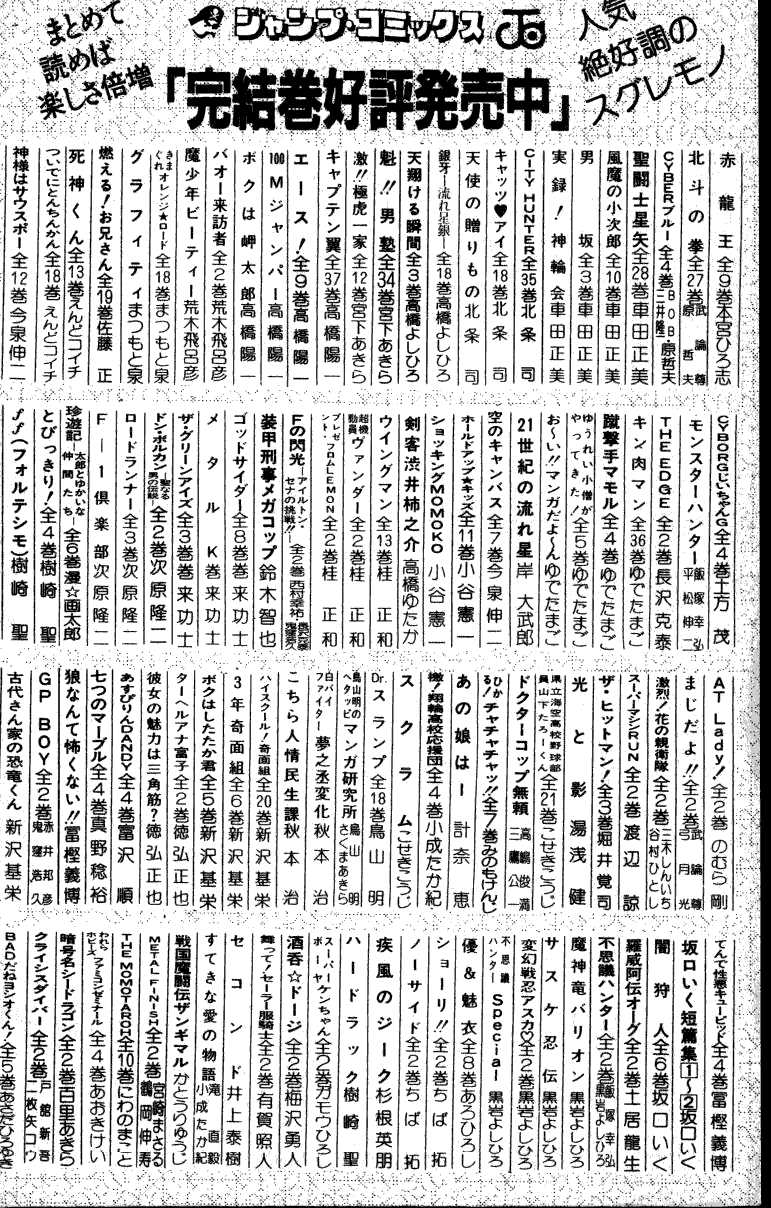 まとめて
読めば
楽しさ倍増
ジャンプ・コミックス
人気
絶好調の
スグレモノ
「完結巻好評発売中」
赤龍王 全9巻 本宮ひろ志
北斗の拳 全27巻 武論尊 原哲夫
CYBERブルー 全4巻 BOB・原哲夫 二井隆一
聖闘士星矢 全28巻 車田正美
風魔の小次郎 全10巻 車田正美
男坂 全3巻 車田正美
実録!神輪会 車田正美
CITY HUNTER 全35巻 北条司
キャッツ♥アイ 全18巻 北条司
天使の贈りもの 北条司
銀牙―流れ星銀― 全18巻 高橋よしひろ
天翔ける瞬間 全3巻 高橋よしひろ
魁!!男塾 全34巻 宮下あきら
激!!極虎一家 全12巻 宮下あきら
キャプテン翼 全37巻 高橋陽一
エース! 全9巻 高橋陽一
100Mジャンパー 高橋陽一
ボクは岬太郎 高橋陽一
バオー来訪者 全2巻 荒木飛呂彦
魔少年ビーティー 荒木飛呂彦
きまぐれオレンジ★ロード 全18巻 まつもと泉
グラフィティ まつもと泉
燃える!お兄さん 全19巻 佐藤正
死神くん 全13巻 えんどコイチ
ついでにとんちんかん 全18巻 えんどコイチ
神様はサウスポー 全12巻 今泉伸二
CYBORGじいちゃんG 全4巻 土方茂
モンスターハンター 飯塚幸弘 平松伸二
THE EDGE 全2巻 長沢克泰
キン肉マン 全36巻 ゆでたまご
蹴撃手マモル 全4巻 ゆでたまご
ゆうれい小僧がやってきた! 全5巻 ゆでたまご
お〜い!!マンガだよ〜ん ゆでたまご
21世紀の流れ星 岸大武郎
空のキャンバス 全7巻 今泉伸二
ホールドアップ★キッズ 全11巻 小谷憲一
ショッキングMOMOKO 小谷憲一
剣客渋井柿之介 高橋ゆたか
ウイングマン 全13巻 桂正和
超機動員ヴァンダー 全2巻 桂正和
プレゼント・フロムLEMON 全2巻 桂正和
Fの閃光―アイルトン・セナの挑戦!!― 全2巻 西村幸祐
装甲刑事メガコップ 鈴木智也
ゴッドサイダー 全8巻 巻来功士
メタルK 巻来功士
ザ・グリーンアイズ 全3巻 巻来功士
ドン・ボルカン―聖なる男の伝説― 全2巻 次原隆二
ロードランナー 全3巻 次原隆二
F―1倶楽部 次原隆二
珍遊記―太郎とゆかいな仲間たち― 全6巻 漫☆画太郎
とびっきり! 全4巻 樹崎聖
ff(フォルテシモ) 樹崎聖
AT Lady! 全2巻 のむら剛
まじだよ!! 全2巻 武論尊 弓月光
激烈!花の親衛隊 全2巻 三木しんいち 谷村ひとし
スーパーマシンRUN 全2巻 渡辺諒
ザ・ヒットマン! 全3巻 堀井覚司
光と影 湯浅健
県立海空高校野球部員山下たろーくん 全21巻 こせきこうじ
ドクターコップ無頼 高嶋俊満 三鷹公一
ひかる!チャチャチャッ!! 全7巻 みのもけんじ
あの娘は― 計奈恵
檄!翔輪高校応援団 全4巻 小成たか紀
スクラム こせきこうじ
Dr.スランプ 全18巻 鳥山明
鳥山明のヘタッピマンガ研究所 鳥山明 さくまあきら
白バイファイター夢之丞変化 秋本治
こちら人情民生課 秋本治
ハイスクール!奇面組 全20巻 新沢基栄
3年奇面組 全6巻 新沢基栄
ボクはしたたか君 全5巻 新沢基栄
ターヘルアナ富子 全2巻 徳弘正也
彼女の魅力は三角筋? 徳弘正也
あすぴりんDANDY 全4巻 富沢順
七つのマーブル 全4巻 真野稔裕
狼なんて怖くない!! 冨樫義博
GP BOY 全2巻 赤井邦彦 鬼窪浩久
古代さん家の恐竜くん 新沢基栄
てんで性悪キューピッド 全4巻 冨樫義博
坂口いく短篇集1〜2 坂口いく
闇狩人 全6巻 坂口いく
羅威阿伝オーグ 全2巻 土居龍生
不思議ハンター 全2巻 飯塚幸弘 黒岩よしひろ
魔神竜バリオン 黒岩よしひろ
サスケ忍伝 黒岩よしひろ
変幻戦忍アスカ 全2巻 黒岩よしひろ
不思議ハンターSpecial 黒岩よしひろ
優&魅衣 全8巻 あろひろし
ショーリ!! 全2巻 ちば拓
ノーサイド 全2巻 ちば拓
疾風のジーク 杉根英朋
ハードラック 樹崎聖
スーパーボーヤケンちゃん 全2巻 ガモウひろし
酒呑☆ドージ 全2巻 梅沢勇人
舞って!セーラー服騎士 全2巻 有賀照人
セコンド 井上泰樹
すてきな愛の物語 滝直毅 小成たか紀
戦国魔闘伝ザンギマル かとうりゅうじ
METAL FINISH 全2巻 宮崎まさる 鶴岡伸寿
THE MOMOTAROH 全10巻 にわのまこと
われらホビーズファミコンゼミナール 全4巻 あおきけい
暗号名シードラゴン 全2巻 百里あきら
クライシスダイバー 全2巻 戸舘新吾 二枚矢コウ
BADだねヨシオくん! 全5巻 あさだひろゆき